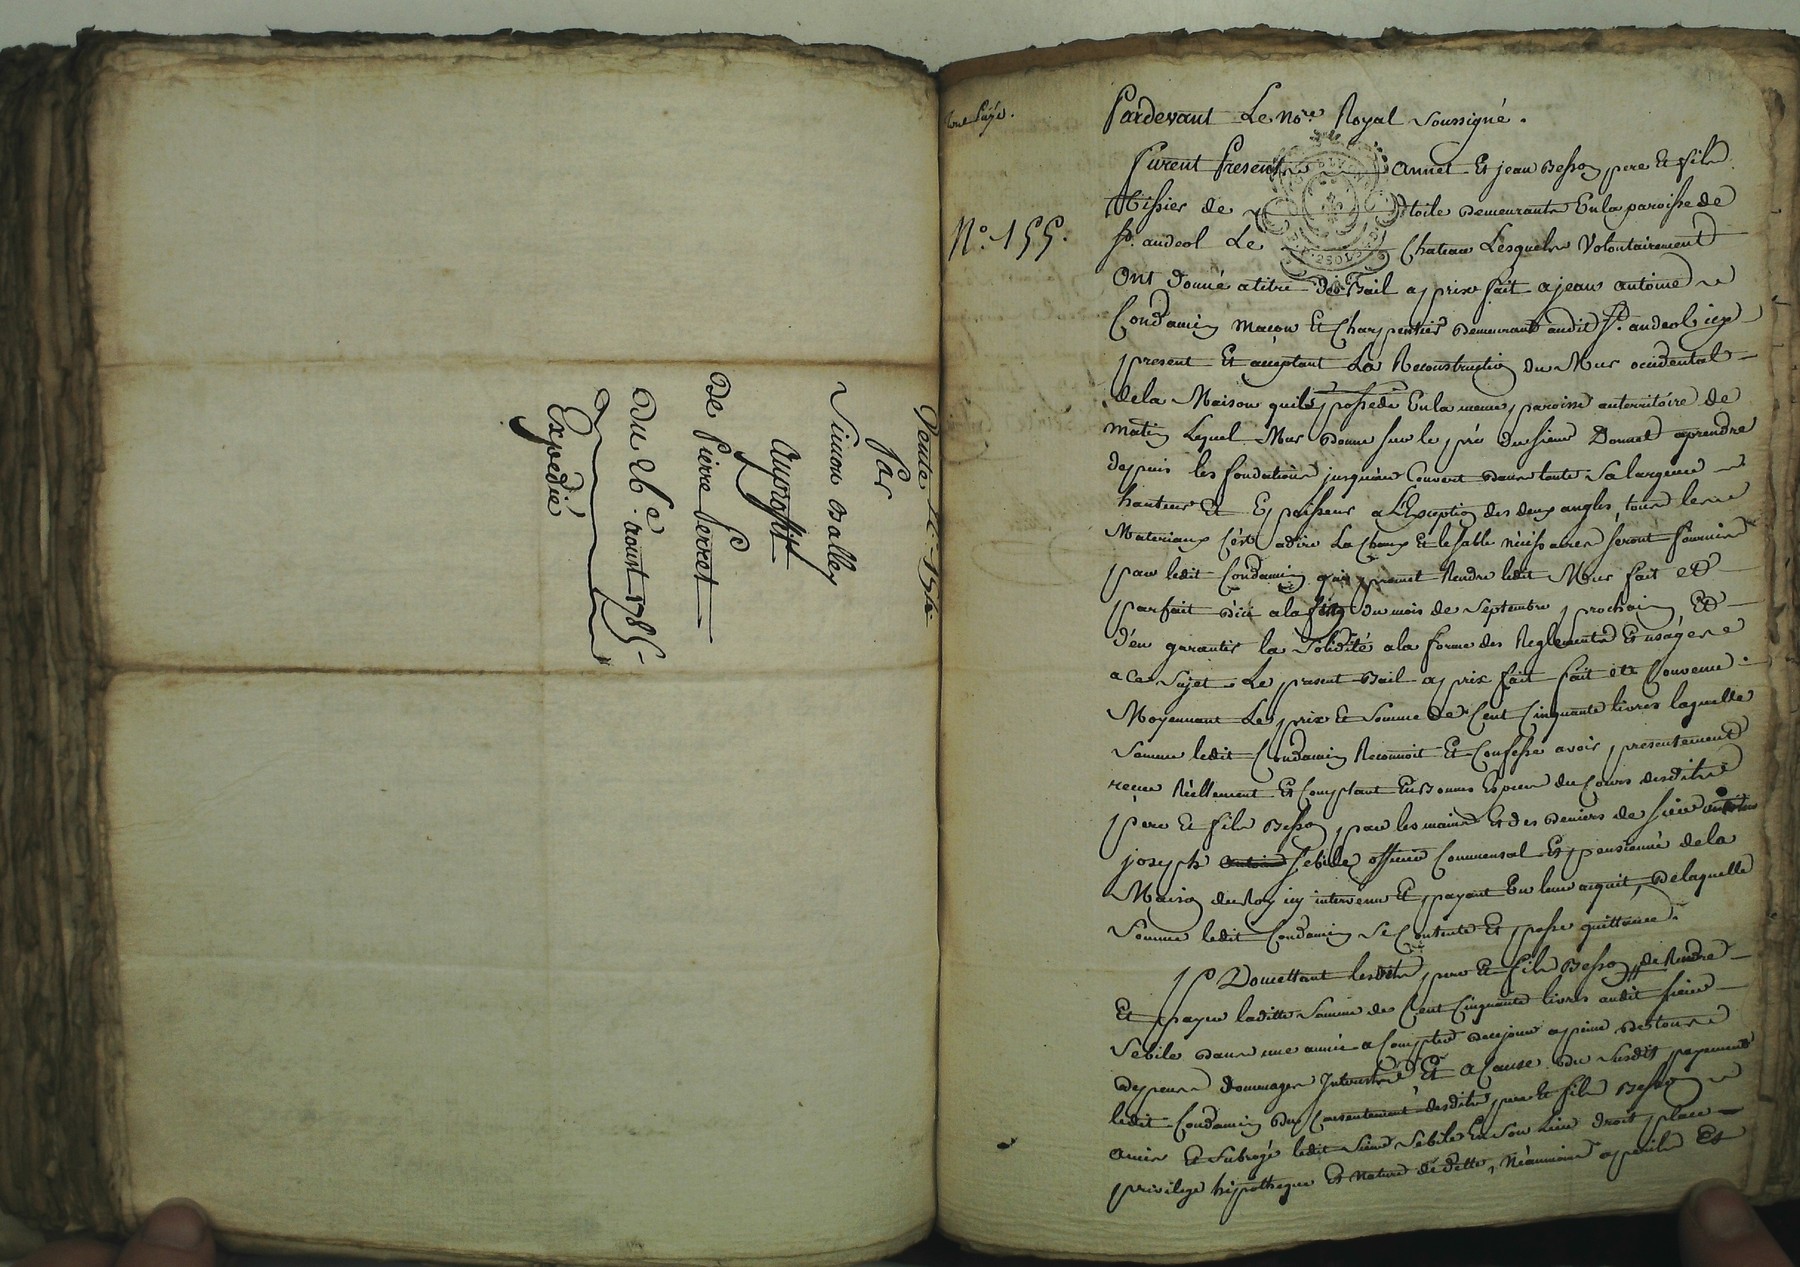 Vente N.° 154.
Par
Simon Balley
Auproffit
De Pierre Serret
Du 26.e aoust 1785
Expedié
N.° 155.
Pardevant Le No.re Royal Soussigné.
Furent Presents Annet Et jean Besson pere Et fils
Tissier de toile Demeurants En la paroisse de
St. andeol Le Chateau Lesquels Volontairement
Ont donné a titre De Bail a prix fait a jean antoine
Condamin Macon Et Charpentier Demeurant audit St. andeol icy
present Et acceptant La Reconstruction du Mur occidental
de la Maison quils possede En la meme paroisse au territoire de
Matin Lequel Mur Donne sur le pré du sieur Donnet a prendre
depuis les fondations jusquau Couvert Dans toute Sa largeur
hauteur Et Epaisseur a L'Exception des deux angles, tous les
Materiaux C'est adire La Chaux Et le sable nécéssaires seront fournis
par ledit Condamin qui promet Rendre ledit Mur fait et
parfait D'ici a la fin du mois de Septembre prochain Et
d'en garantir la Solidité a la forme des Reglements Et usages
a Ce Sujet. Le present Bail a prix fait fait et Convenu
Moyennant Le prix Et Somme de Cent Cinquante livres laquelle
Somme ledit Condamin Reconnoit Et Confesse avoir presentement
reçue Réellement Et Comptant En Bonnes Especes du Cours desdits
pere Et fils Besson par les mains Et des Deniers de sieur
joseph Sebile officier Commensal Et pensionné de la
Maison du Roy icy intervenu Et payant En leur acquit, De laquelle
Somme ledit Condamin Se Contente Et passe quittance.
Promettant lesdits pere Et fils Besson de Rendre
Et payer laditte Somme de Cent Cinquante livres audit sieur
Sebile Dans une année a Compter De ce jour a peine De tous
depens dommages Interests, Et a Cause Du Susdit payement
ledit Condamin Du Consentement desdits pere Et fils Besson
a mis Et Subrogé ledit Sieur Sebile En Son Lieu droit place
privilege hipotheque Et Nature de dette, Néanmoins a peril Et